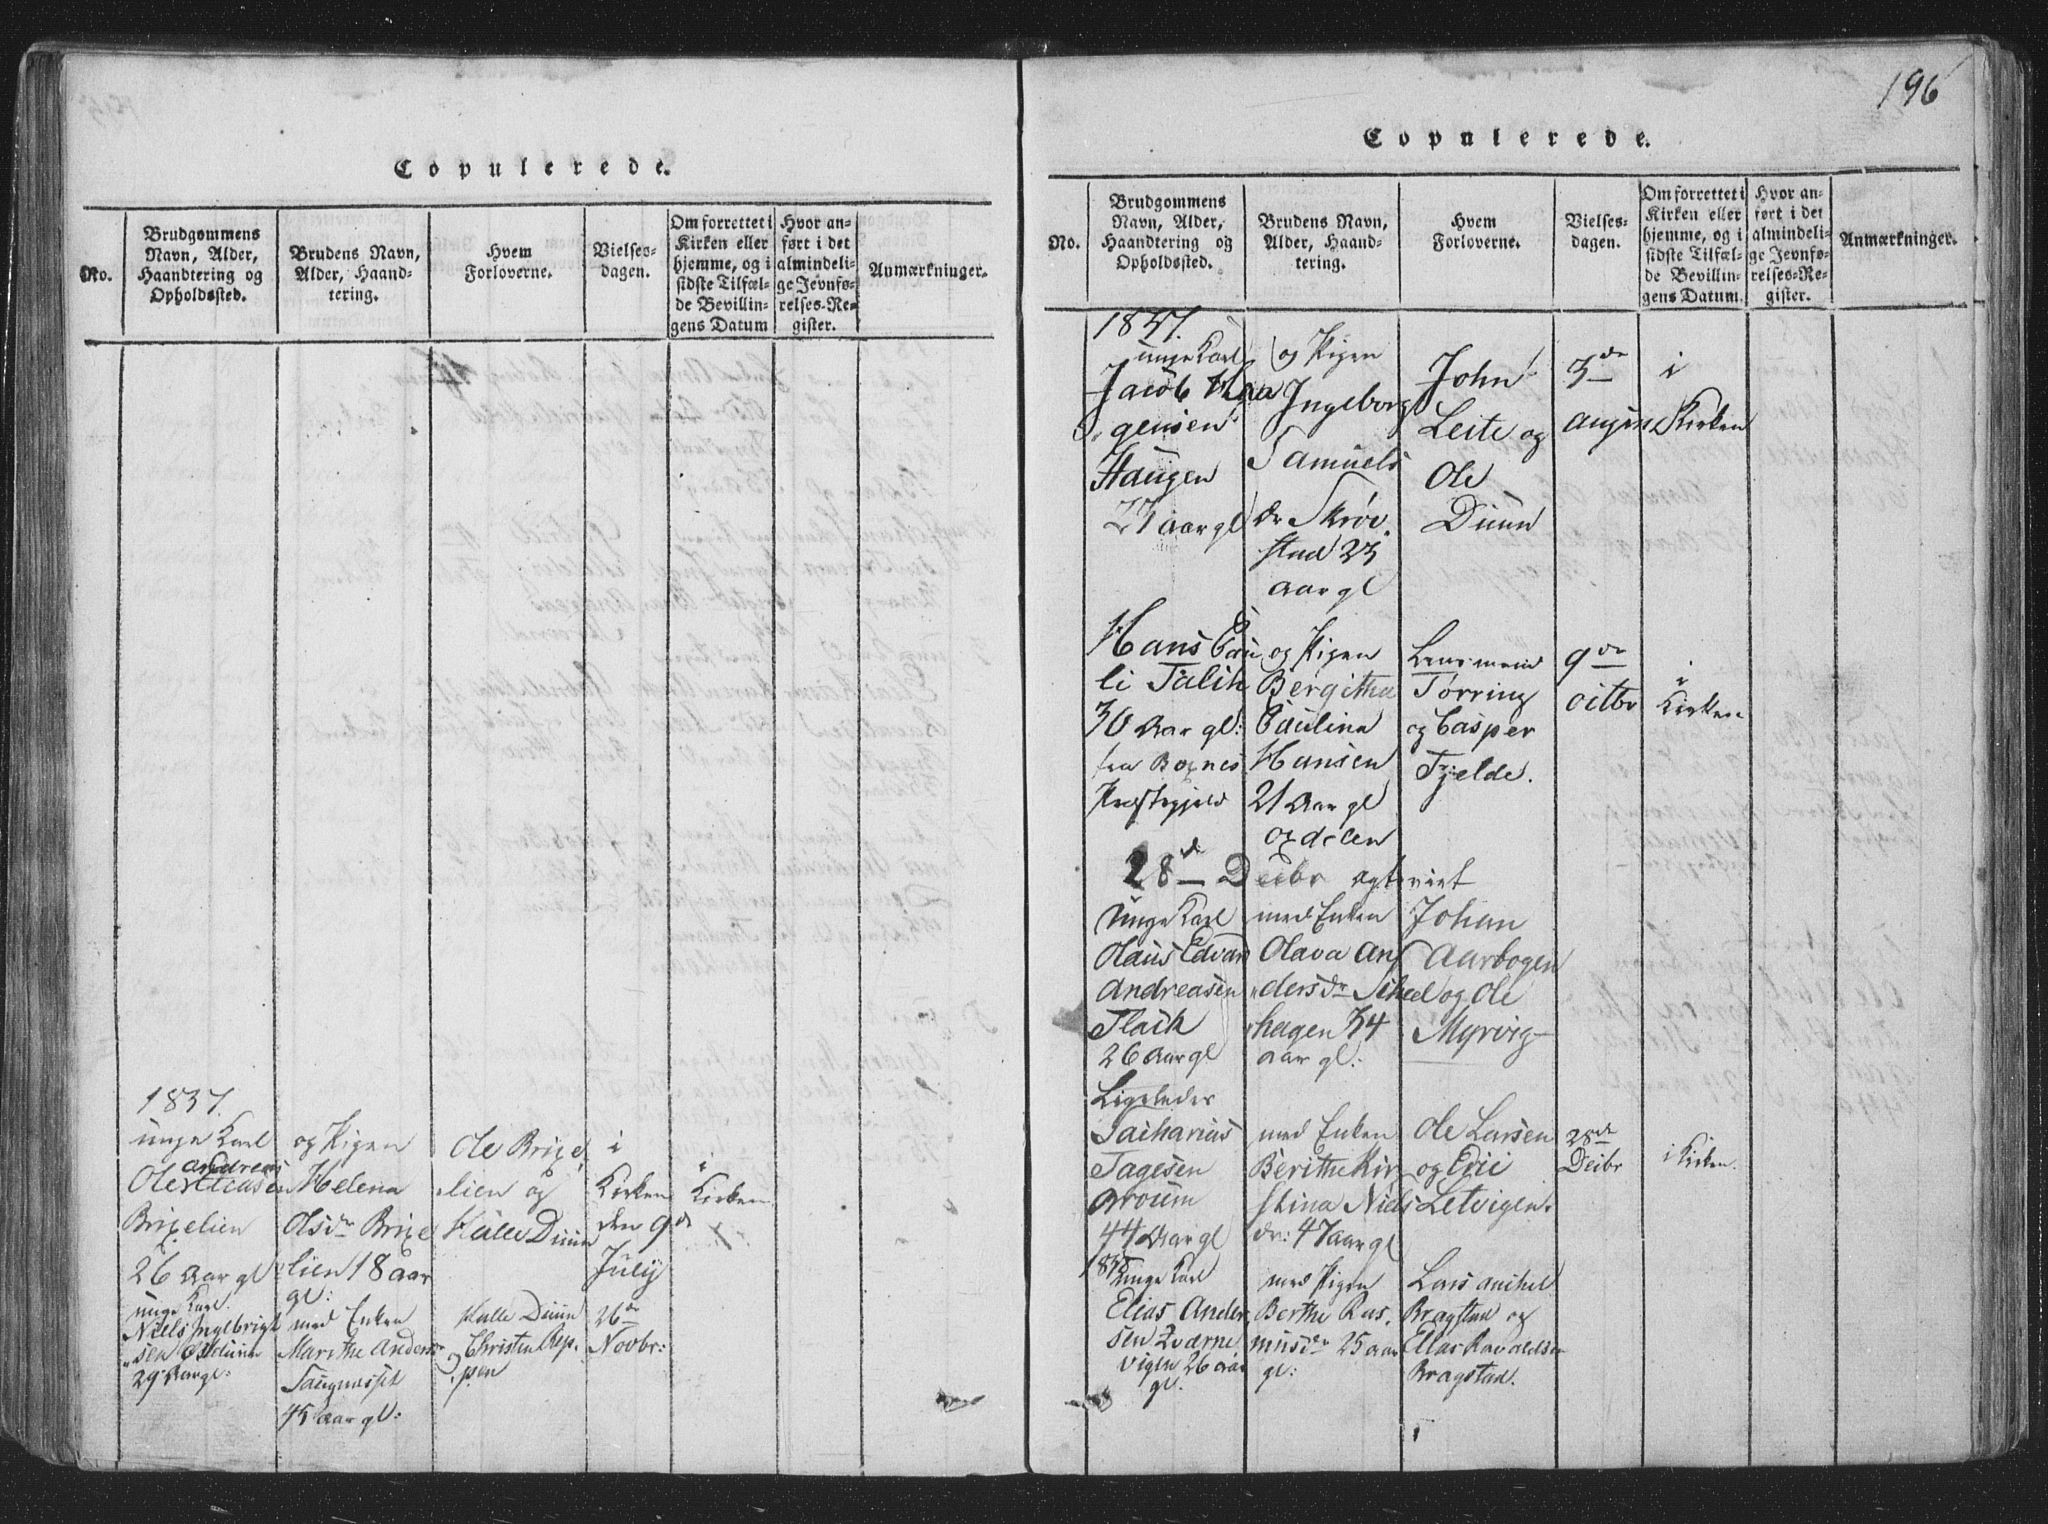 Copulerede.
No.
Brudgommens
Navn, Alder,
Haandtering og
Opholdssted.
Brudens Navn,
Alder, Haand-
tering.
Hvem
Forloverne.
Vielses-
dagen.
Om forrettet i
Kirken eller
hjemme, og i
sidste Tilfæl-
de Bevillin-
gens Datum
Hvor an-
ført i det
almindeli-
ge Jevnfø-
relses-Re-
gister.
Anmærkninger.
1837.
unge Karl
Andreas
Ole
Brixelien
26 Aar gl
og Pigen
Helena
Olsdr Brixe
lien 18 aar
gl:
Ole Brixe
lien og
Kalle Duun
i
Kirken
den 9de
July
i
Kirken
unge Karl
Niels Ingebrigt
sen
29 Aar gl:
med Enken
Marethe Anders
45 aar gl:
Kalle Duun
og Christen Rep
pen
26de
Novbr:
196
Copulerede.
No.
Brudgommens
Navn, Alder,
Haandtering og
Opholdssted.
Brudens Navn,
Alder, Haand-
tering.
Hvem
Forloverne.
Vielses-
dagen.
Om forrettet i
Kirken eller
hjemme, og i
sidste Tilfæl-
de Bevillin-
gens Datum.
Hvor an-
ført i det
almindeli-
ge Jevnfø-
relses-Re-
gister.
Anmærkninger.
1837.
unge Karl
Jacob Haa
gensen
Haugen
27 aar gl
og Pigen
Ingeborg
Samuels
dr Skrøv
stad 23
aar gl
John
Leite og
Ole
Duun
3de
Kirken
i
Hans Pau
li Falik
30 Aar gl:
fra
Præstegjeld
og Pigen
Bergitha
Paulina
Hansen
21 Aar gl
Lensmand
Tørring
og Casper
Fjelde.
9de
octbr
i
Kirken
28de Decbr
unge Karl
Olaus Edvar
Andreasen
26 Aar gl
med Enken
Olava An
dersdr Scheel
hagen 34
aar gl:
Johan
Aarbogen
og Ole
Myrvig
Ligeledes
Zacharias
Tagesen
44 Aar gl
med Enken
Berithe Kir
stina Niels
dr: 47 aar gl
Ole Larsen
og Eric
Letvigen.
28de
Decbr
i Kirken.
1838
unge Karl
Elias Ander
sen Qværne
vigen 26 aar
gl.
med Pigen
Berthe Ras
musdr 25 aar
gl:
Lars
Bragstad og
Elias
Bragstad.